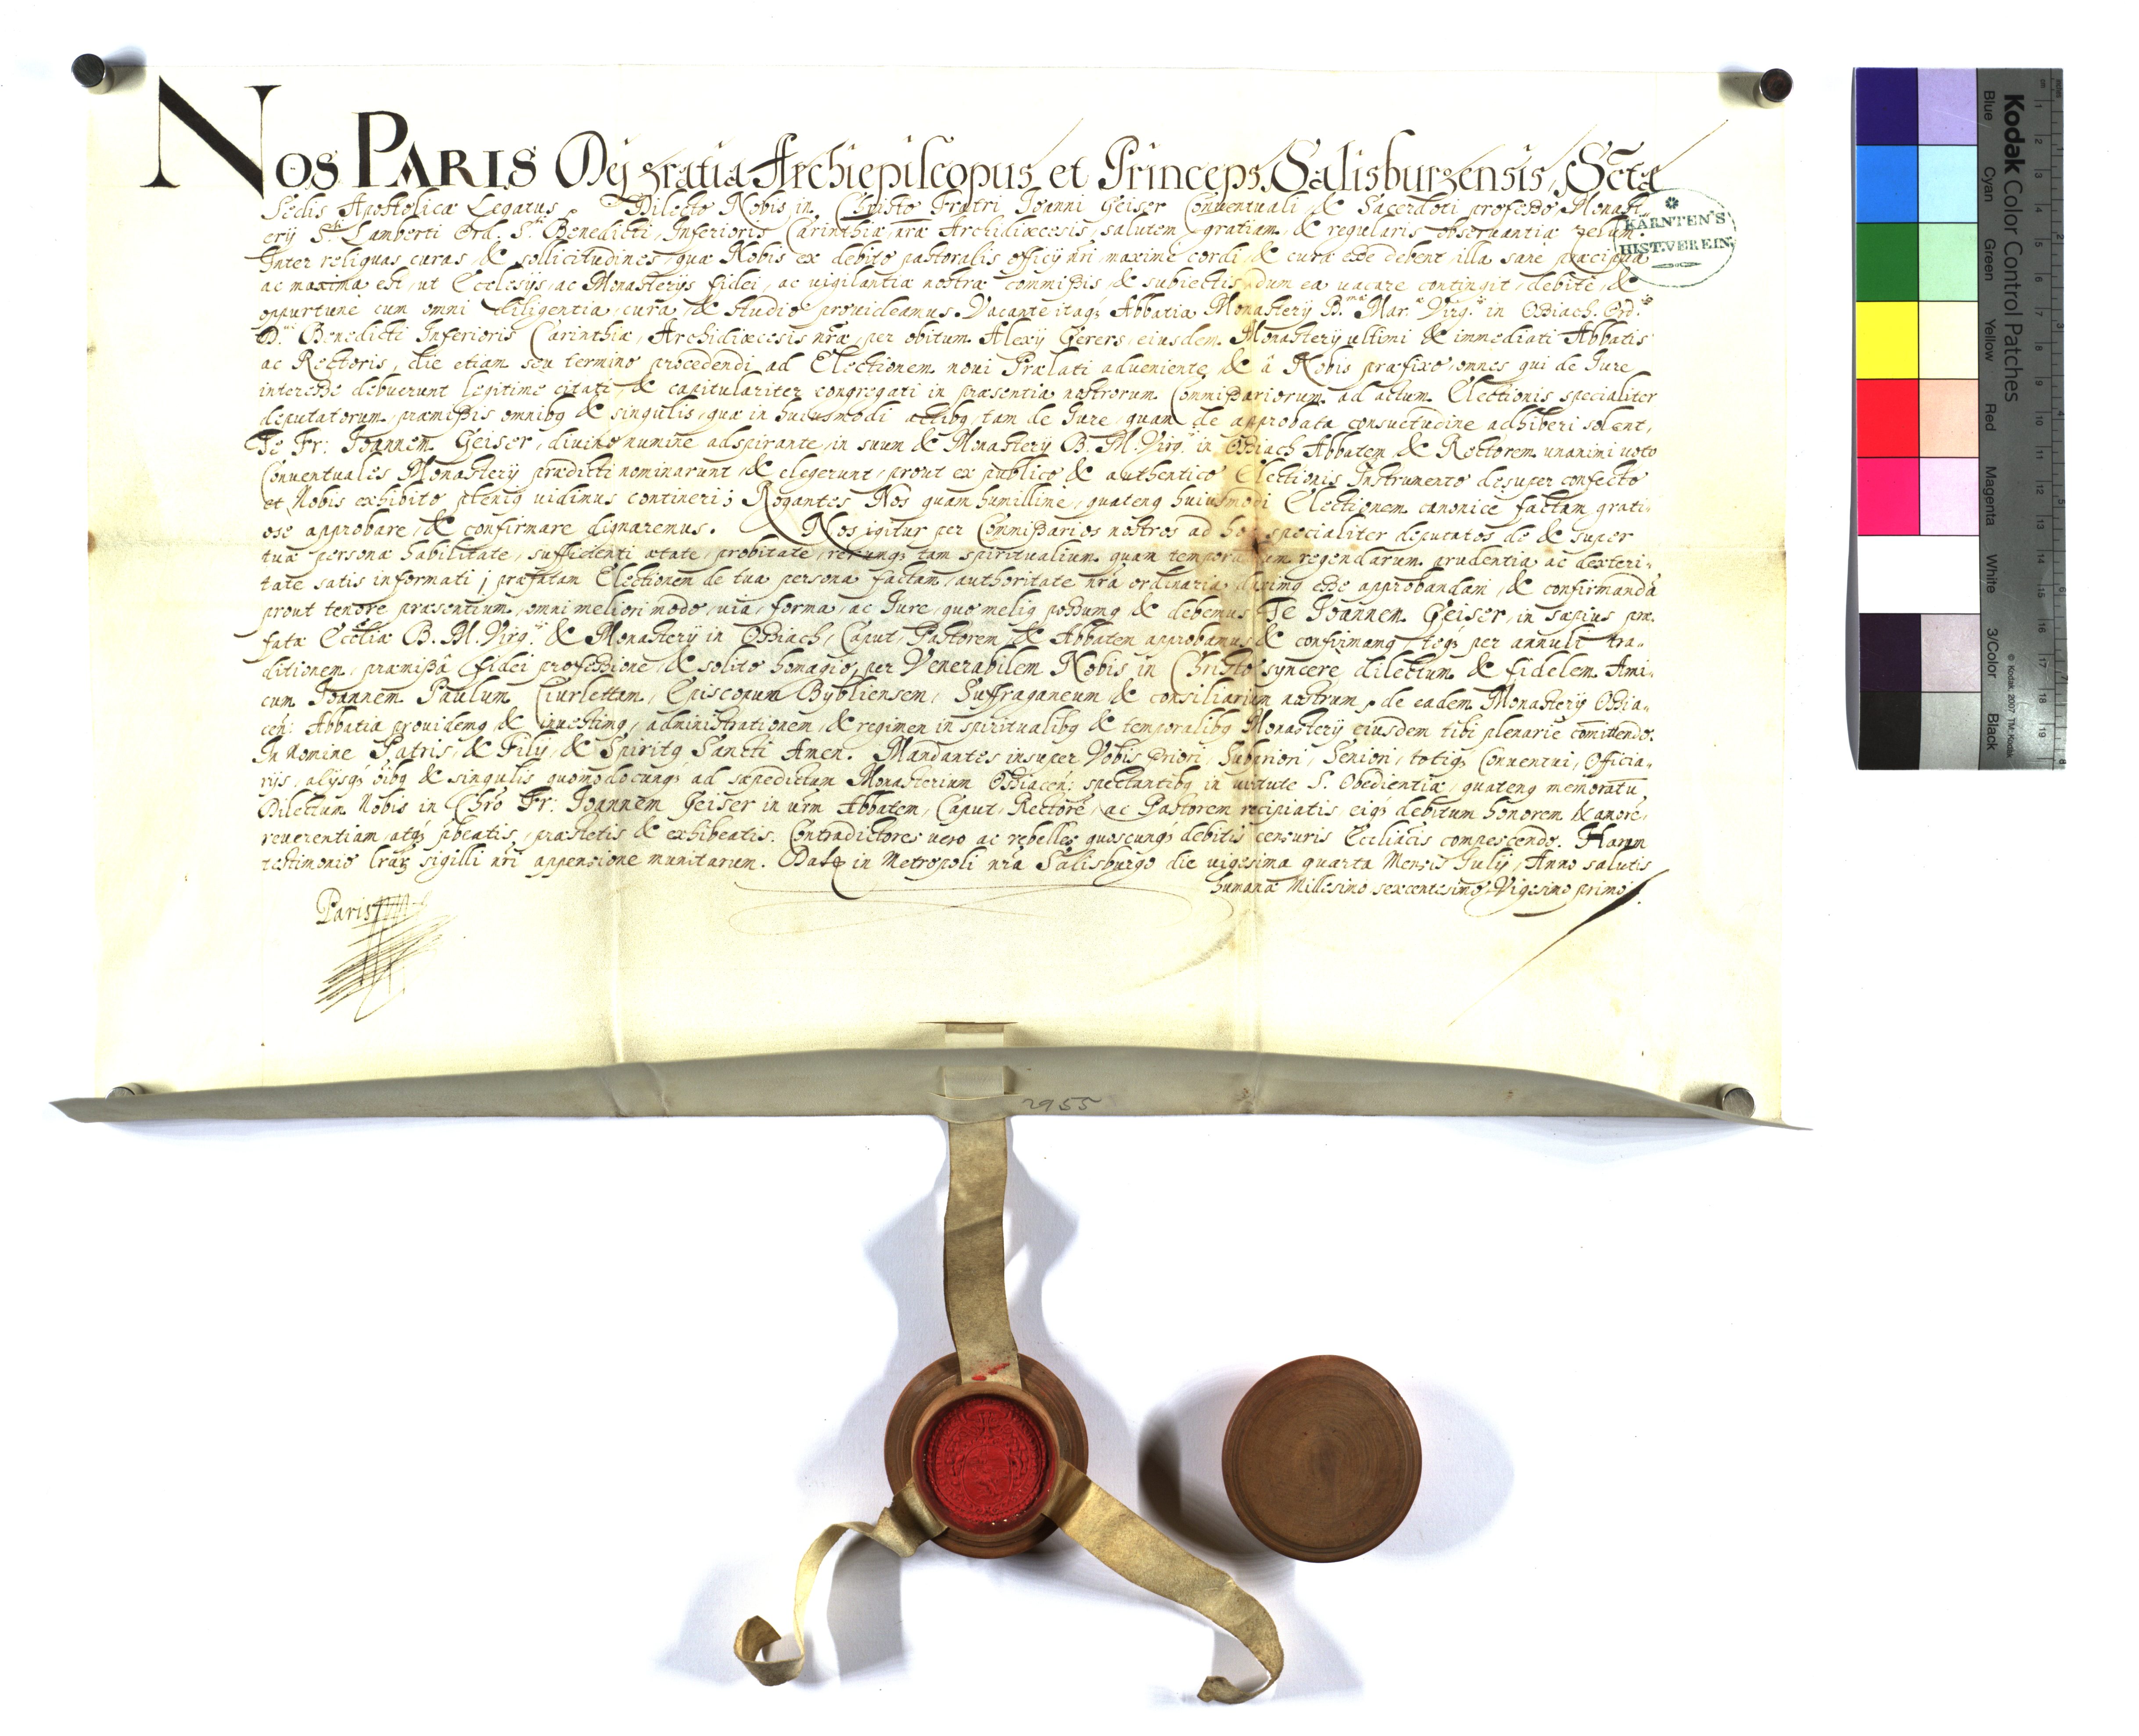 Nos Paris Dej gratia Archiepiscopus et Princeps Salisburgensis, Sctæ
Sedis Apostolicæ Legatus. Dilecto Nobis in Christo Fratri Joanni Geiser Conventuali & Sacerdoti professo Monast-
erij S. Lamberti Ord. S. Benedicti, Inferioris Carinthiæ, nræ Archidiœcesis, salutem gratiam, & regularis observantiæ zelum.
Inter reliquas curas & sollicitudines, quæ Nobis ex debito pastoralis officij nri, maxime cordi & curæ esse debent, illa sane præcipua
ac maxima est, ut Ecclesijs, ac Monasterijs fidei, ac vigilantiæ nostræ commissis & subiectis, dum ea vacare contingit, debite, &
oppurtune cum omni diligentia, cura, & studio provideamus. Vacante itaq; Abbatia Monasterij B.mæ Mar.æ Virg.is in Ossiach. Ord.is
D. Benedicti Inferioris Carinthiæ, Archidiœcesis nræ, per obitum Alexij Gerers, eiusdem Monasterij ultimi & immediati Abbatis
ac Rectoris, die etiam seu termino procedendi ad Electionem novi Prælati adveniente, & â Nobis præfixo, omnes qui de Jure
interesse debuerunt legitime citati, & capitulariter congregati in præsentia nostrorum Commissariorum, ad actum Electionis specialiter
deputatorum, præmissis omnibq & singulis, quæ in huiusmodi actibq tam de Jure, quam de approbata consuetudine adhiberi solent,
Te Fr: Joannem Geiser, divino numine adspirante, in suum & Monasterij B. M. Virg. in Ossiach Abbatem & Rectorem unanimi voto
Conventuales Monasterij prædicti nominarunt, & elegerunt, prout ex publico & authentico Electionis Instrumento desuper confecto
et Nobis exhibito pleniq vidimus contineri; Rogantes Nos quam humillime, quatenq huiusmodi Electionem canonice factam grati-
ose approbare, & confirmare dignaremus. Nos igitur per Commissarios nostros ad hoc specialiter deputatos de & super
tuæ personæ habilitate, sufficienti ætate, probitate, rerumq; tam spiritualium quam temporalium regendarum prudentia ac dexteri-
tate satis informati; præfatam Electionem de tua persona factam, authoritate nra ordinaria duximq esse approbandam, & confirmandã
prout tenore præsentium, omni meliori modo, via, forma, ac Jure, quo meliq possumq & debemus Te Joannem Geiser, in sæpius præ-
fatæ Eccliæ B. M. Virg. & Monasterij in Ossiach, Caput, Pastorem, & Abbatem approbamus & confirmamq, teq; per annuli tra-
ditionem, præmissa fidei professione, & solito homagio, per Venerabilem Nobis in Christo syncere dilectum & fidelem Ami-
cum Joannem Paulum Ciurlettam, Episcopum Bybliensem, Suffraganeum & consiliarium nostrum, de eadem Monasterij Ossia-
cen: Abbatia providemq & investimq, administrationem, & regimen in spiritualibq & temporalibq Monasterij eiusdem tibi plenarie comittendo.
In Nomine Patris, & Filij, & Spiritq Sancti Amen. Mandantes insuper Vobis Priori, Subpriori, Seniori, totiq; Conventui, Officia-
rijs, alijsq; õibq & singulis quomodocunq; ad sæpedictum Monasterium Ossiacen: spectantibq in virtute S. Obedientiæ, quatenq memoratũ
Dilectum Nobis in Chro Fr: Joannem Geiser in vrm Abbatem, Caput, Rectorẽ, ac Pastorem recipiatis, eiq; debitum honorem & amorẽ,
reverentiam, atq; præstetis & exhibeatis. Contradictores vero ac rebelles quoscunq; debitis censuris Eccliacis compescendo. Harum
testimonio lraq; sigilli nri appensione munitarum. Datæ in Metropoli nra Salisburgo die vigesima quarta Mensis Julij, Anno salutis
humanæ Millesimo sexcentesimo Vigesimo primo.
Paris
KÄRNTEN'S
HIST. VEREIN
2955
Kodak Color Control Patches
Blue Cyan Green Yellow Red Magenta White 3/Color Black
© Kodak, 2007 TM: Kodak
cm 1 2 3 4 5 6 7 8 9 10 11 12 13 14 15 16 17 18 19